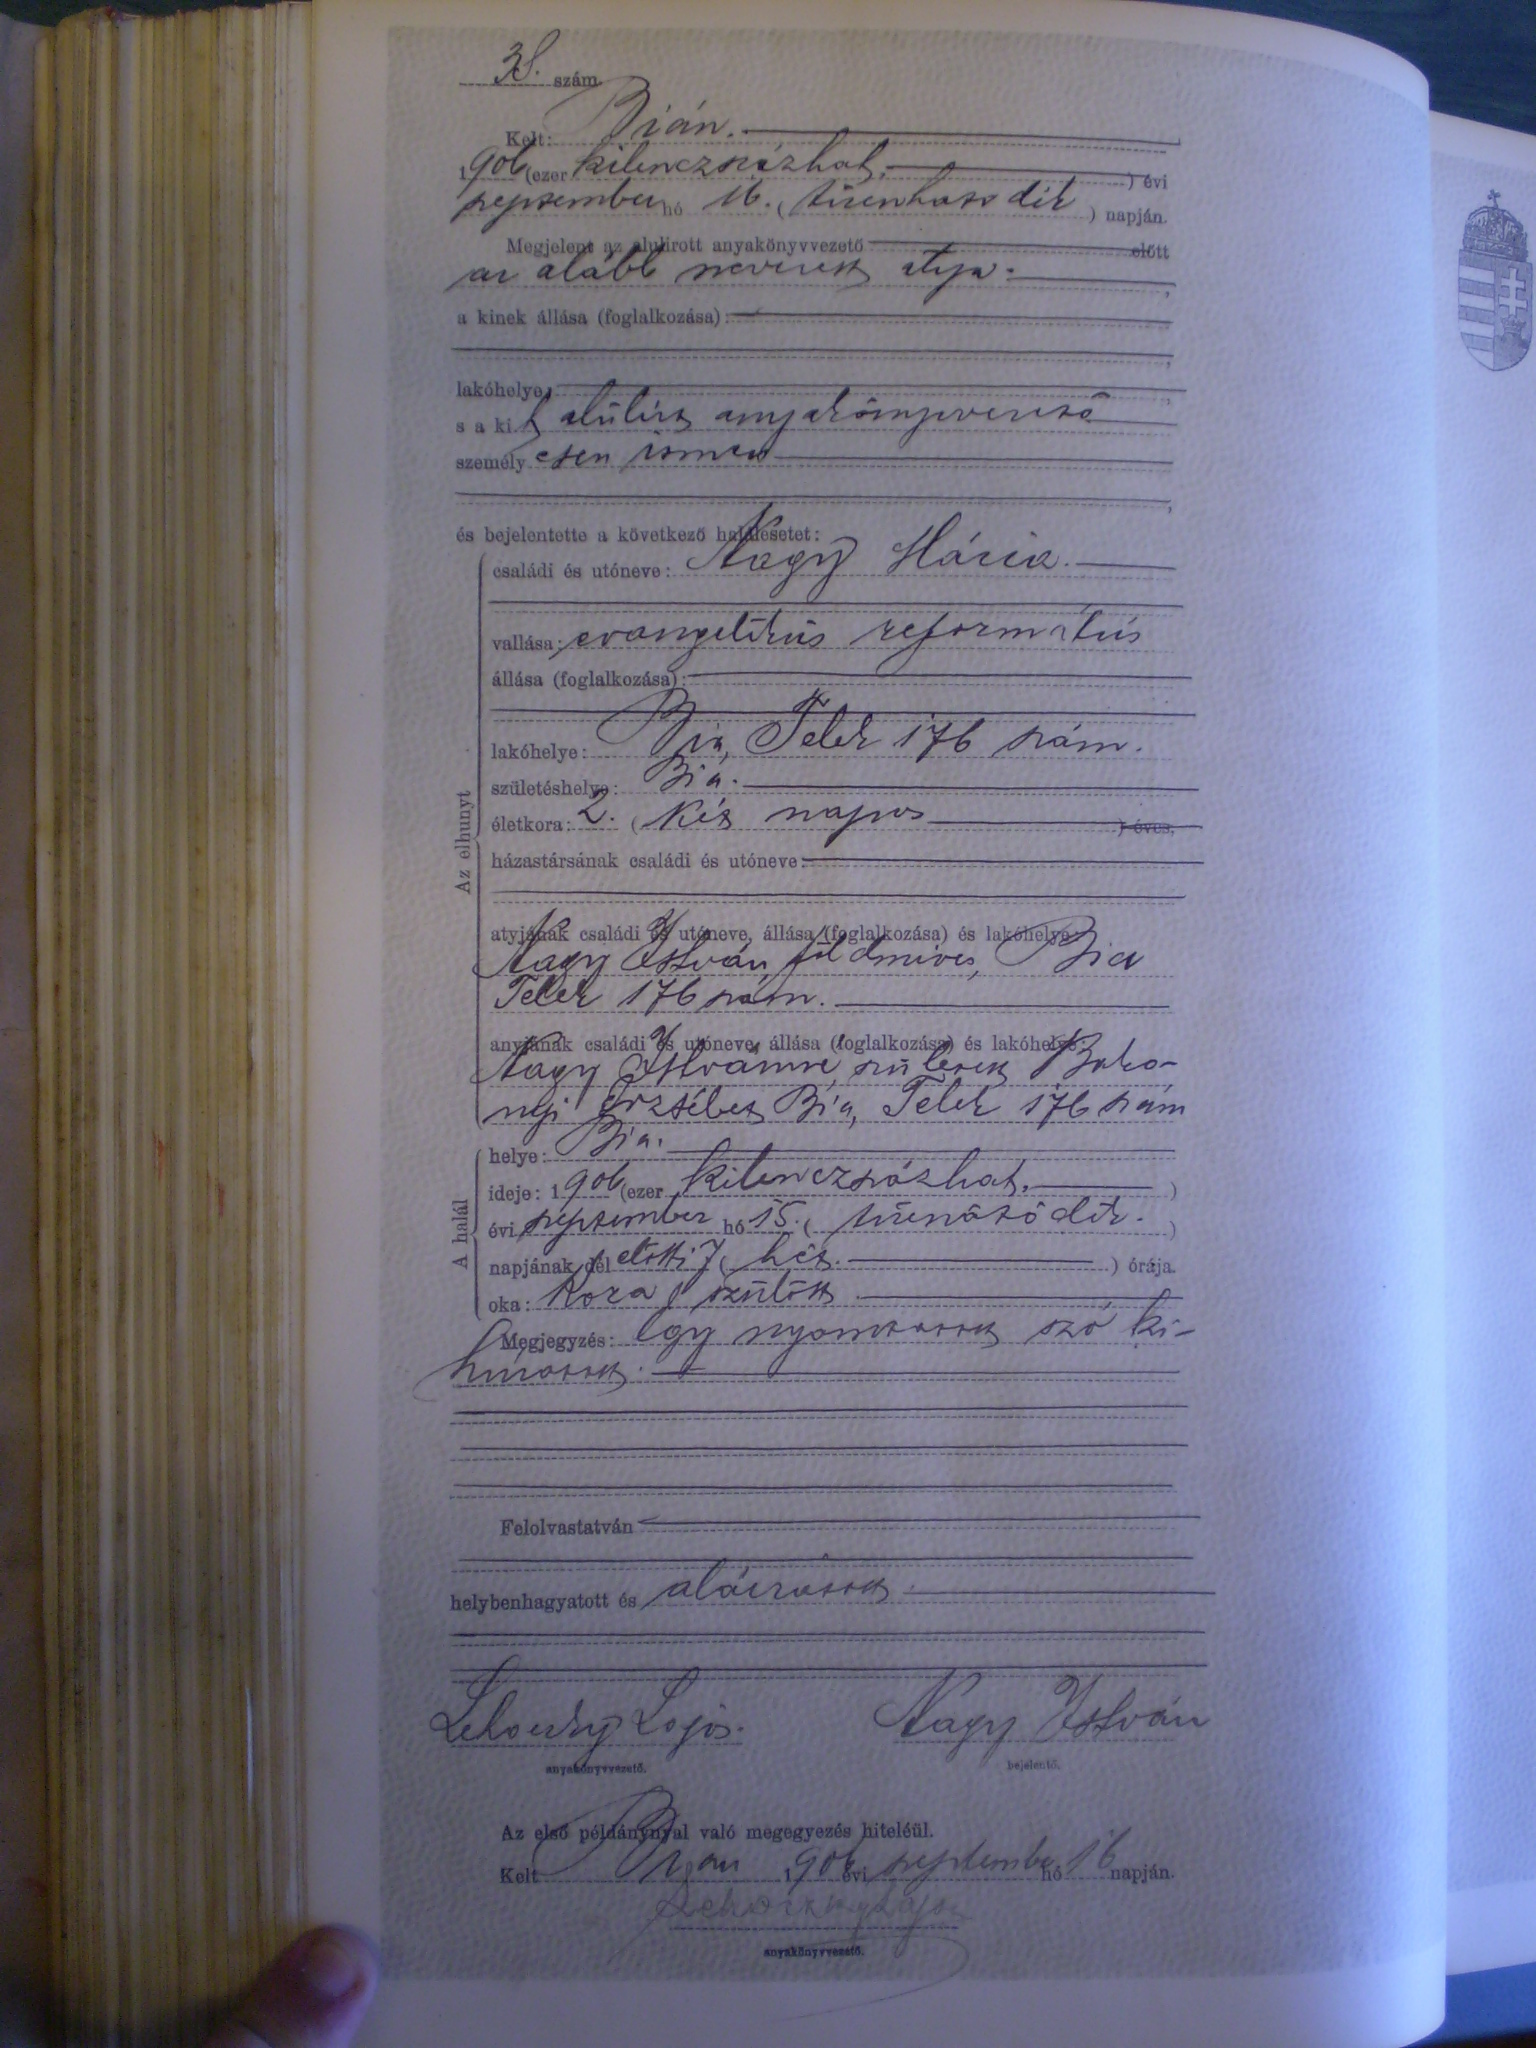 38. szám.
Kelt: Bián.
1906 (ezer kilenczszázhat.) évi
september hó 16. (tizenhatodik) napján.
Megjelent az alulirott anyakönyvvezető előtt
az alább nevezett atyja.
a kinek állása (foglalkozása):
lakóhelye
s a kit alúlirt anyakönyvvezető
személyesen ismer
és bejelentette a következő halálesetet:
Az elhunyt
családi és utóneve: Nagy Mária.
vallása: evangelikus református
állása (foglalkozása):
lakóhelye: Bia, Telek 176 szám.
születéshelye: Bia.
életkora: 2. (két napos) éves,
házastársának családi és utóneve:
atyjának családi és utóneve, állása (foglalkozása) és lakóhelye:
Nagy István, földmives, Bia
Telek 176 szám.
anyjának családi és utóneve, állása (foglalkozása) és lakóhelye:
Nagy Istvánné, született Bako-
nyi Erzsébet Bia, Telek 176 szám
A halál
helye: Bia.
ideje: 1906 (ezer kilenczszázhat.)
évi september hó 15. (tizenötödik.)
napjának dél előtti 7 (hét.) órája.
oka: Kora szülött
Megjegyzés: Egy nyomtatott szó ki-
húzatott.
Felolvastatván
helybenhagyatott és aláiratott
Lehoczky Lajos. Nagy István
anyakönyvvezető. bejelentő.
Az első példánynyal való megegyezés hiteléül.
Kelt Bián 1906 évi september hó 16 napján.
Lehoczky Lajos
anyakönyvvezető.